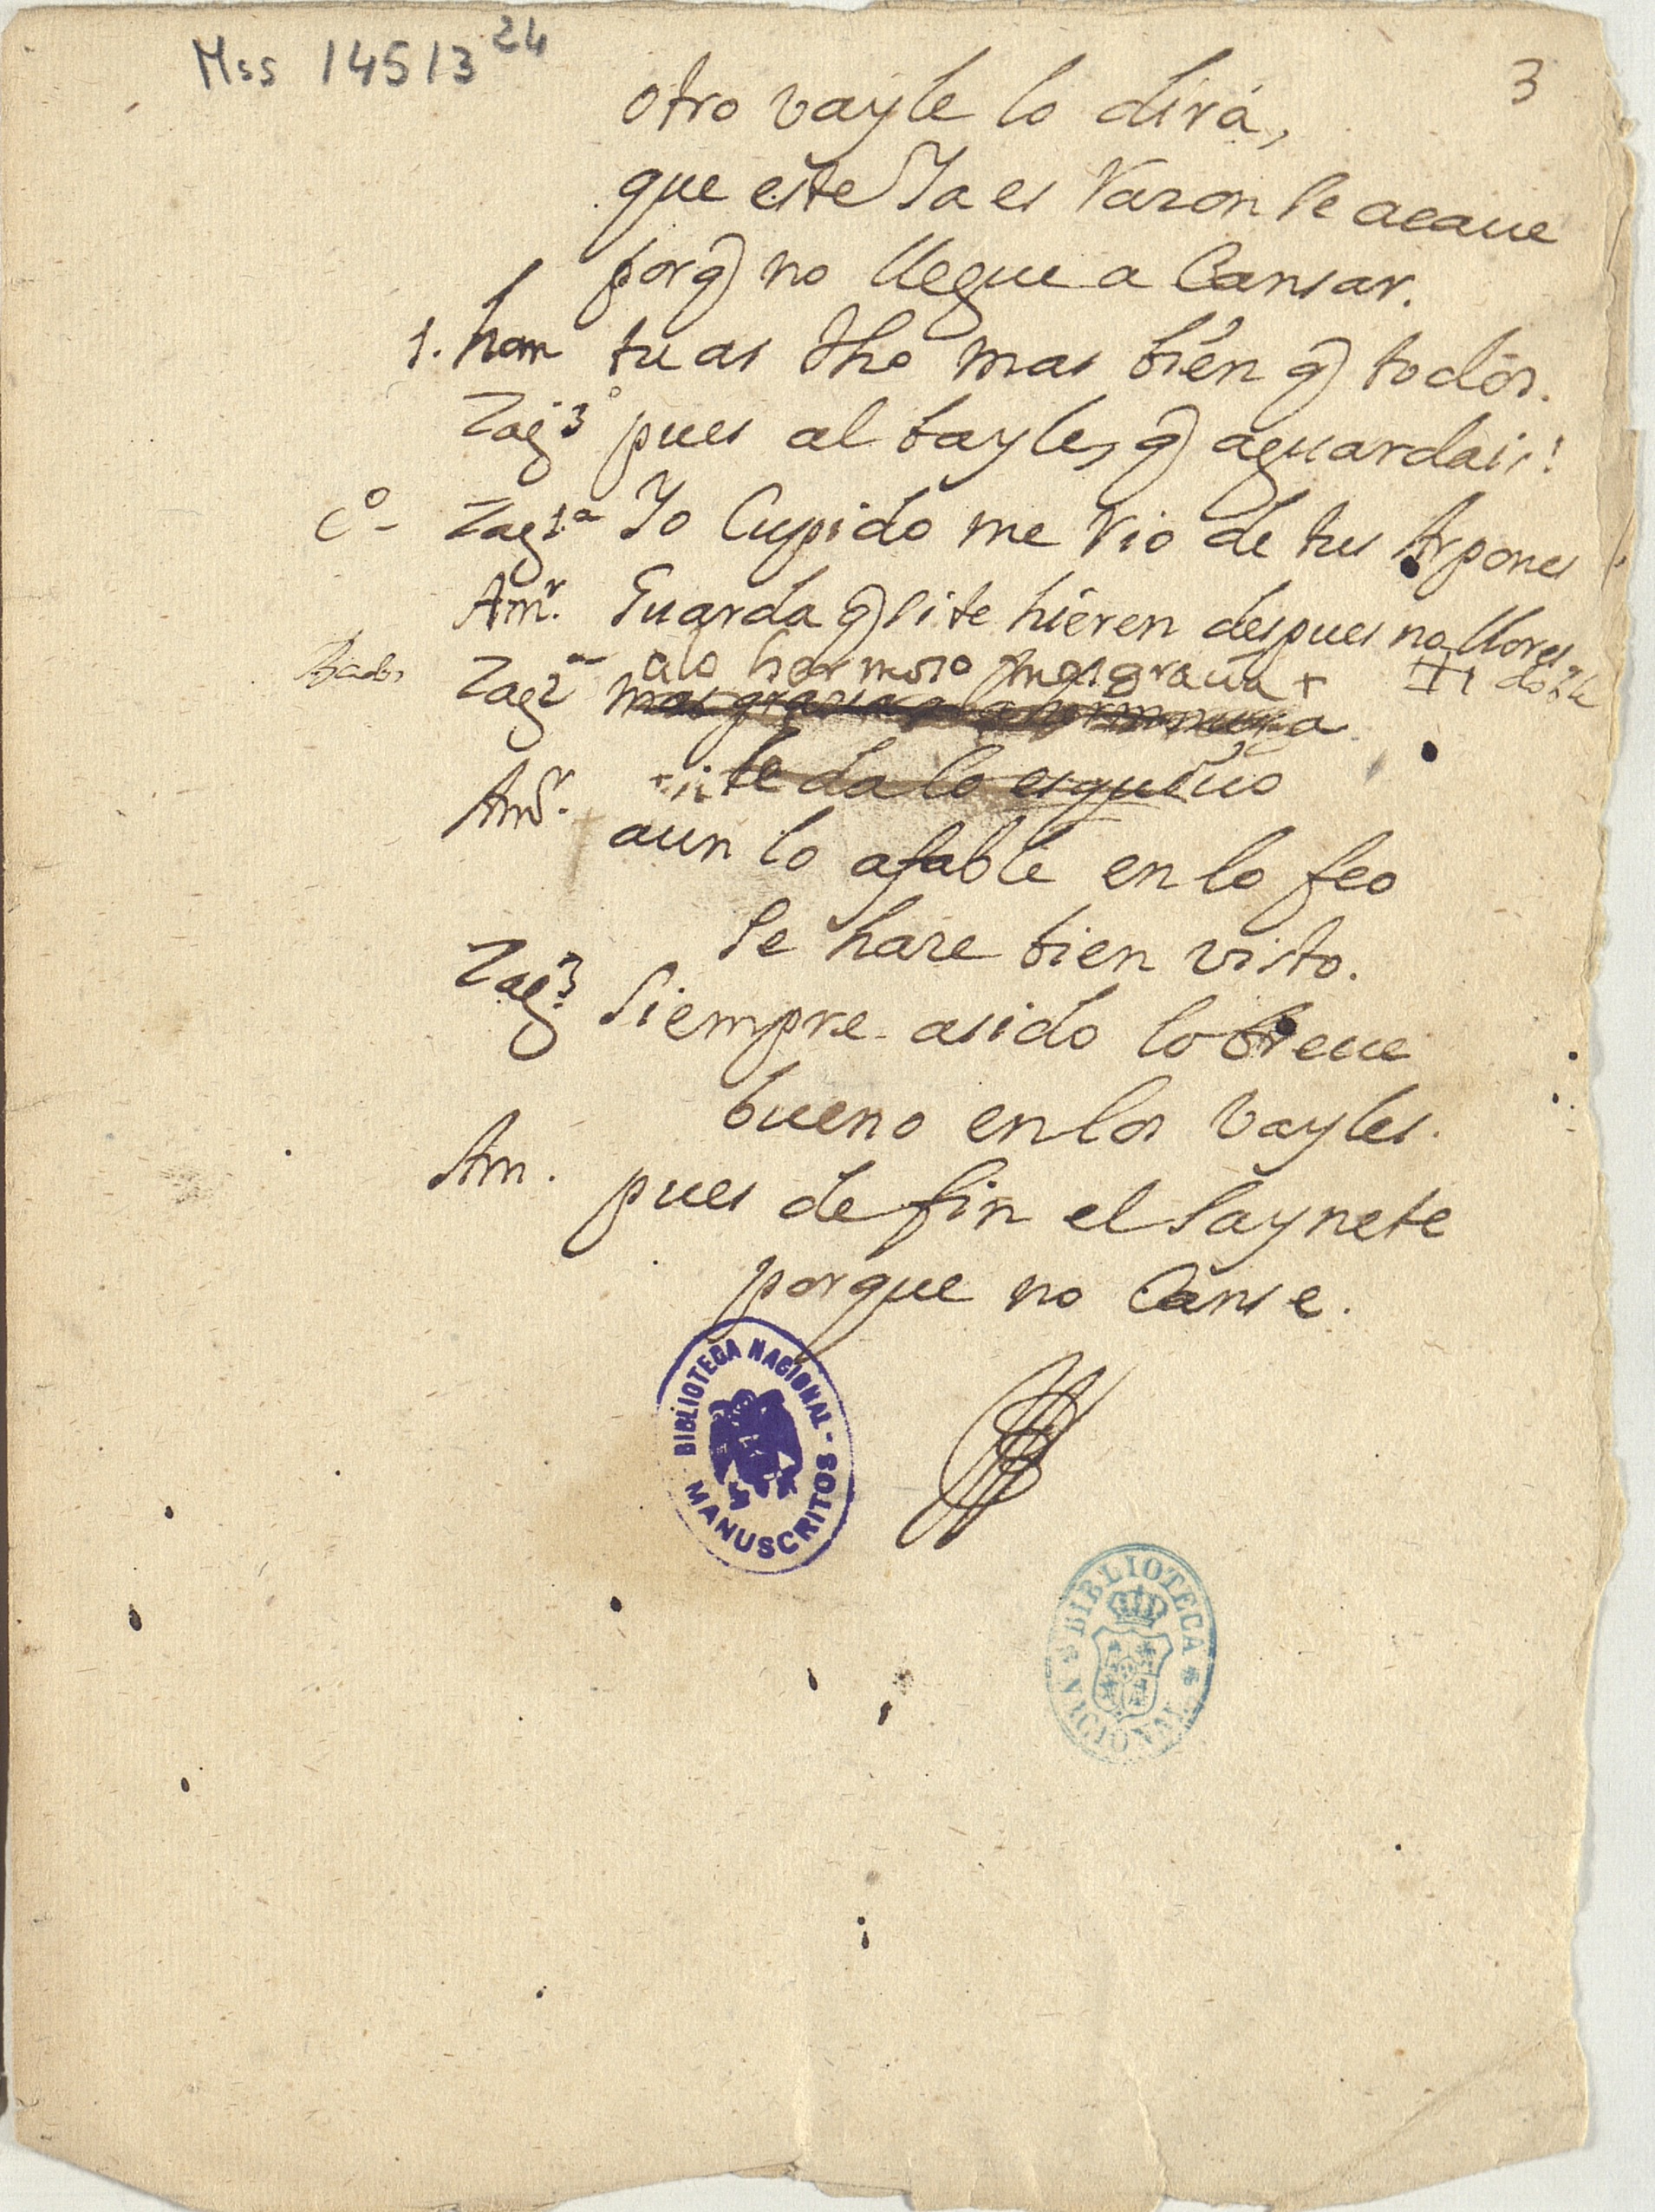 Mss 14513 24
3
otro vayle lo dirá,
que este Ya es Razon se acaue
porq̃ no llegue a Cansar.
1. hom tu as dho mas bien q̃ todos.
Zag 3º pues al bayle, q̃ aguardais!
Cº - Zag 1ª Yo Cupido me Rio de tus Arpones
Amr. Guarda q̃ si te hieren despues no llores
Zag 2ª a lo hermoso mas gracia
mas gracia a la hermosura
te da lo esquiuo
Amr. aun lo afable en lo feo
Se haze bien visto.
Zag 3 Siempre asido lo breue
bueno en los vayles.
Am. pues de fin el Saynete
porque no Canse.
BIBLIOTECA NACIONAL - MANUSCRITOS
BIBLIOTECA NACIONAL